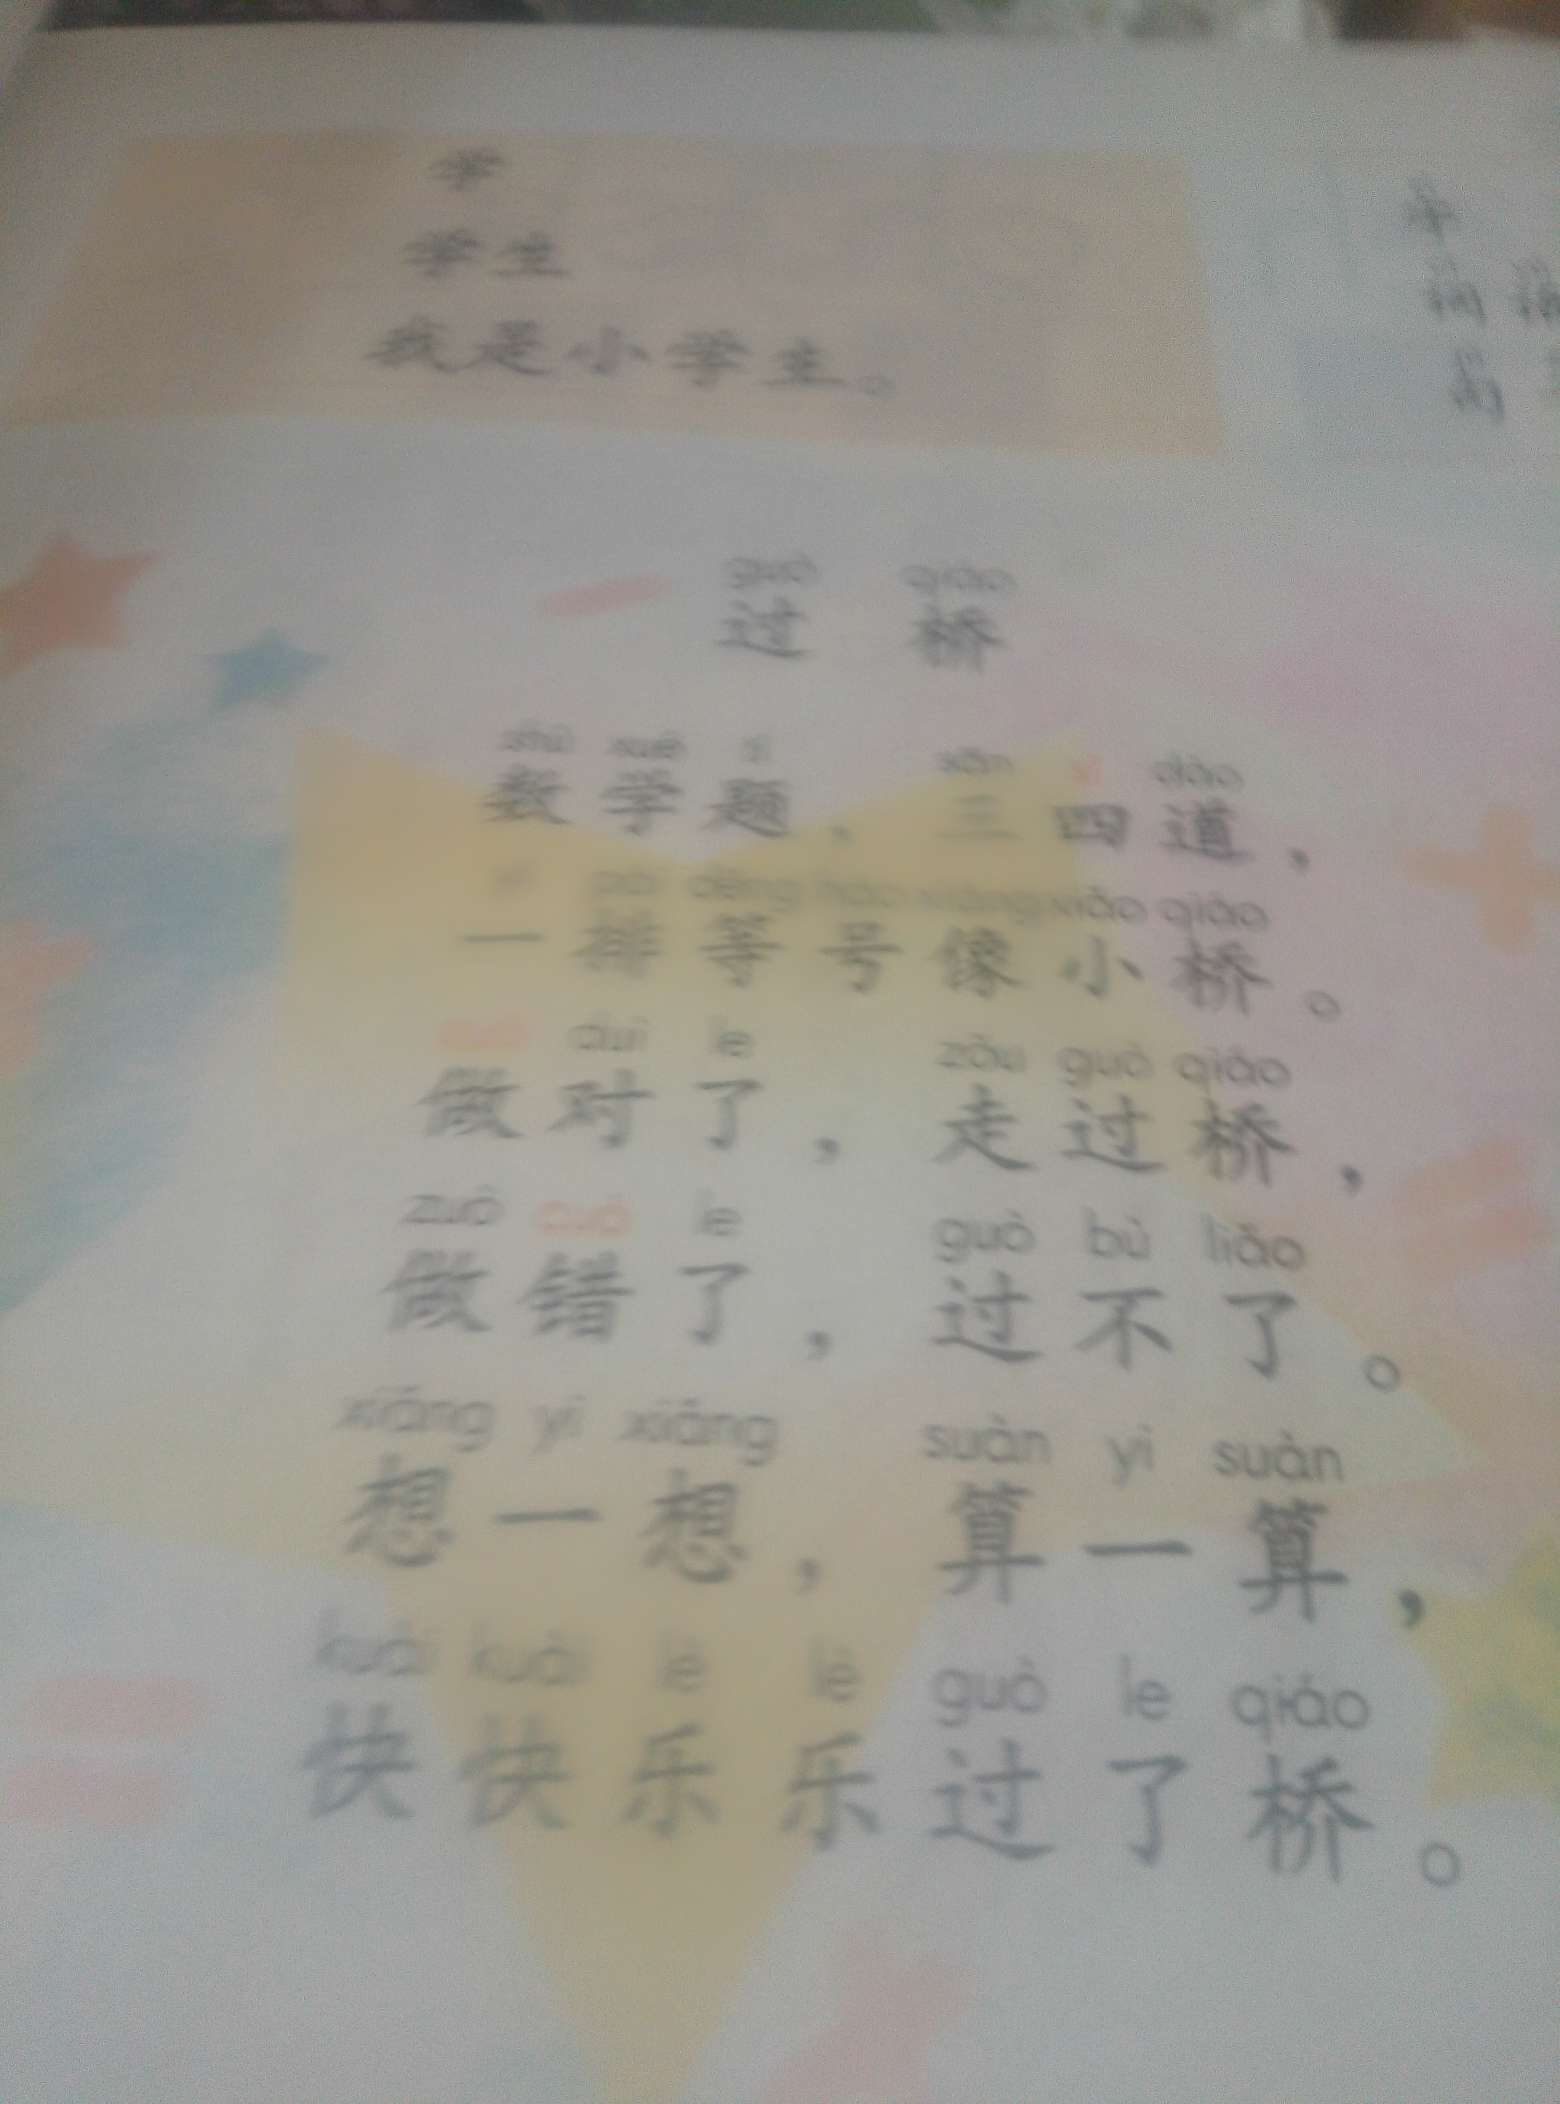 学
学生
我是小学生。
guò qiáo
过 桥
shù xué tí sān sì dào
数学题，三四道，
yì pái děng hào xiàng xiǎo qiáo
一排等号像小桥。
zuò duì le zǒu guò qiáo
做对了，走过桥，
zuò cuò le guò bù liǎo
做错了，过不了。
xiǎng yi xiǎng suàn yi suàn
想一想，算一算，
kuài kuài lè lè guò le qiáo
快快乐乐过了桥。